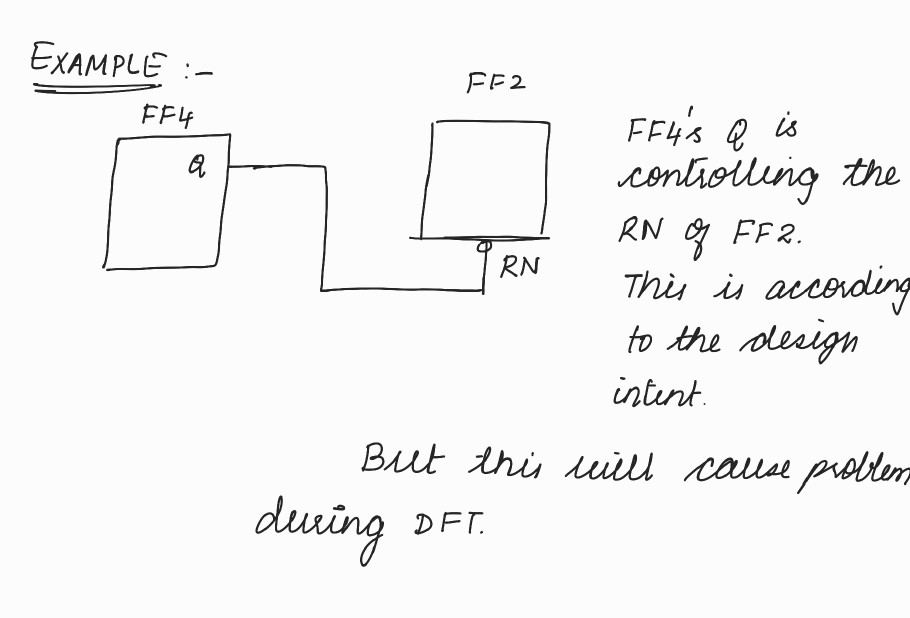 EXAMPLE :-
FF4
FF2
Q
RN
FF4's Q is
controlling the
RN of FF2.
This is according
to the design
intent.
But this will cause problem
during DFT.